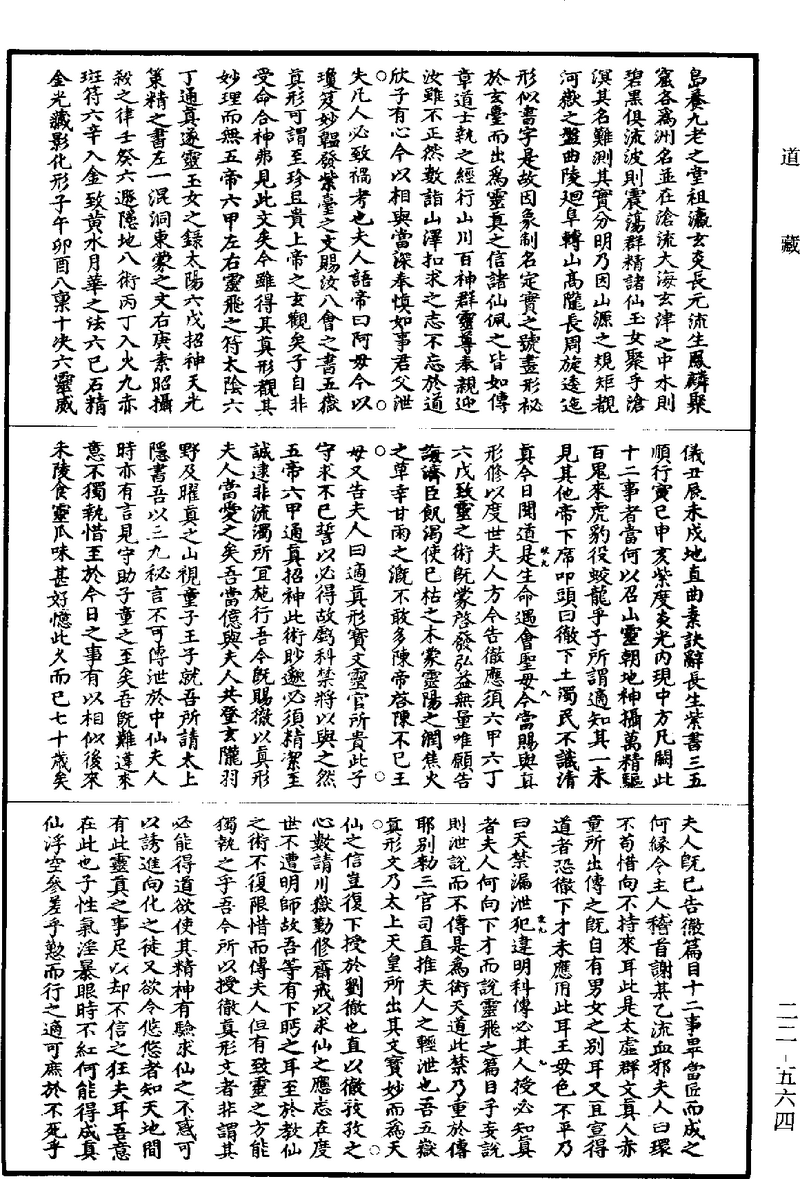 道藏
島養九老之堂祖瀛玄炎長元流生鳳麟聚
窟各為洲名並在滄流大海玄津之中水則
碧黑俱流波則震蕩群精諸仙玉女聚乎滄
溟其名難測其實分明乃因山源之規矩覩
河嶽之盤曲陵迴阜轉山高隴長周旋逶迤
形似書字是故因象制名定實之號畫形祕
於玄臺而出為靈真之信諸仙佩之皆如傳
章道士執之經行山川百神群靈尊奉親迎
汝雖不正然數詣山澤扣求之志不忘於道
欣子有心今以相與當深奉慎如事君父泄
失凡人必致禍考也夫人語帝曰阿母今以
瓊笈妙韞發紫臺之文賜汝八會之書五嶽
真形可謂至珍且貴上帝之玄觀矣子自非
受命合神弗見此文矣今雖得其真形觀其
妙理而無五帝六甲左右靈飛之符太陰六
丁通真逐靈玉女之錄太陽六戊招神天光
策精之書左一混洞東蒙之文右庚素昭攝
殺之律壬癸六遯隱地八術丙丁入火九赤
班符六辛入金致黃水月華之法六巳石精
金光藏影化形子午卯酉八稟十決六靈威
儀丑辰未戌地直曲素訣辭長生紫書三五
順行寅巳申亥紫度炎光內現中方凡闕此
十二事者當何以召山靈朝地神攝萬精驅
百鬼來虎豹役蛟龍乎子所謂適知其一未
見其他帝下席叩頭曰徹下土濁民不識清
真今日聞道是生命遇會聖母今當賜與真
形修以度世夫人方今告徹應須六甲六丁
六戊致靈之術既蒙啓發弘益無量唯願告
誨濟臣飢渴使已枯之木蒙靈陽之潤焦火
之草幸甘雨之溉不敢多陳帝啓陳不已王
母又告夫人曰適真形寶文靈官所貴此子
守求不已誓以必得故虧科禁將以與之然
五帝六甲通真招神此術眇邈必須精潔至
誠逮非流濁所宜施行吾今既賜徹以真形
夫人當愛之矣吾當憶與夫人共登玄隴羽
野及曜真之山視童子王子就吾所請太上
隱書吾以三九祕言不可傳泄於中仙夫人
時亦有言見守助子童之至矣吾既難違來
意不獨執惜至於今日之事有以相似後來
朱陵食靈瓜味甚好憶此久而已七十歲矣
夫人既已告徹篇目十二事畢當匠而成之
何緣令主人稽首請某乙流血邪夫人曰環
不苟惜向不持來耳此是太虛群文真人赤
童所出傳之既自有男女之別耳又且宣得
道者恐徹下才未應用此耳王母色不平乃
曰天禁漏泄犯違明科傳必其人授必知真
者夫人何向下才而說靈飛之篇目乎妄說
則泄說而不傳是為衒天道此禁乃重於傳
耶別勑三官司直推夫人之輕泄也吾五嶽
真形文乃太上天皇所出其文寶妙而為天
仙之信豈復下授於劉徹也直以徹孜孜之
心數請川嶽勤修齋戒以求仙之應志在度
世不遭明師故吾等有下眄之耳至於教仙
之術不復限惜而傳夫人但有致靈之方能
獨執之乎吾今所以授徹真形文者非謂其
必能得道欲使其精神有驗求仙之不惑可
以誘進向化之徒又欲令悠悠者知天地間
有此靈真之事足以却不信之狂夫耳吾意
在此也子性氣淫暴眼時不紅何能得成真
仙浮空參差乎懃而行之適可庶於不死乎
二二-五六四